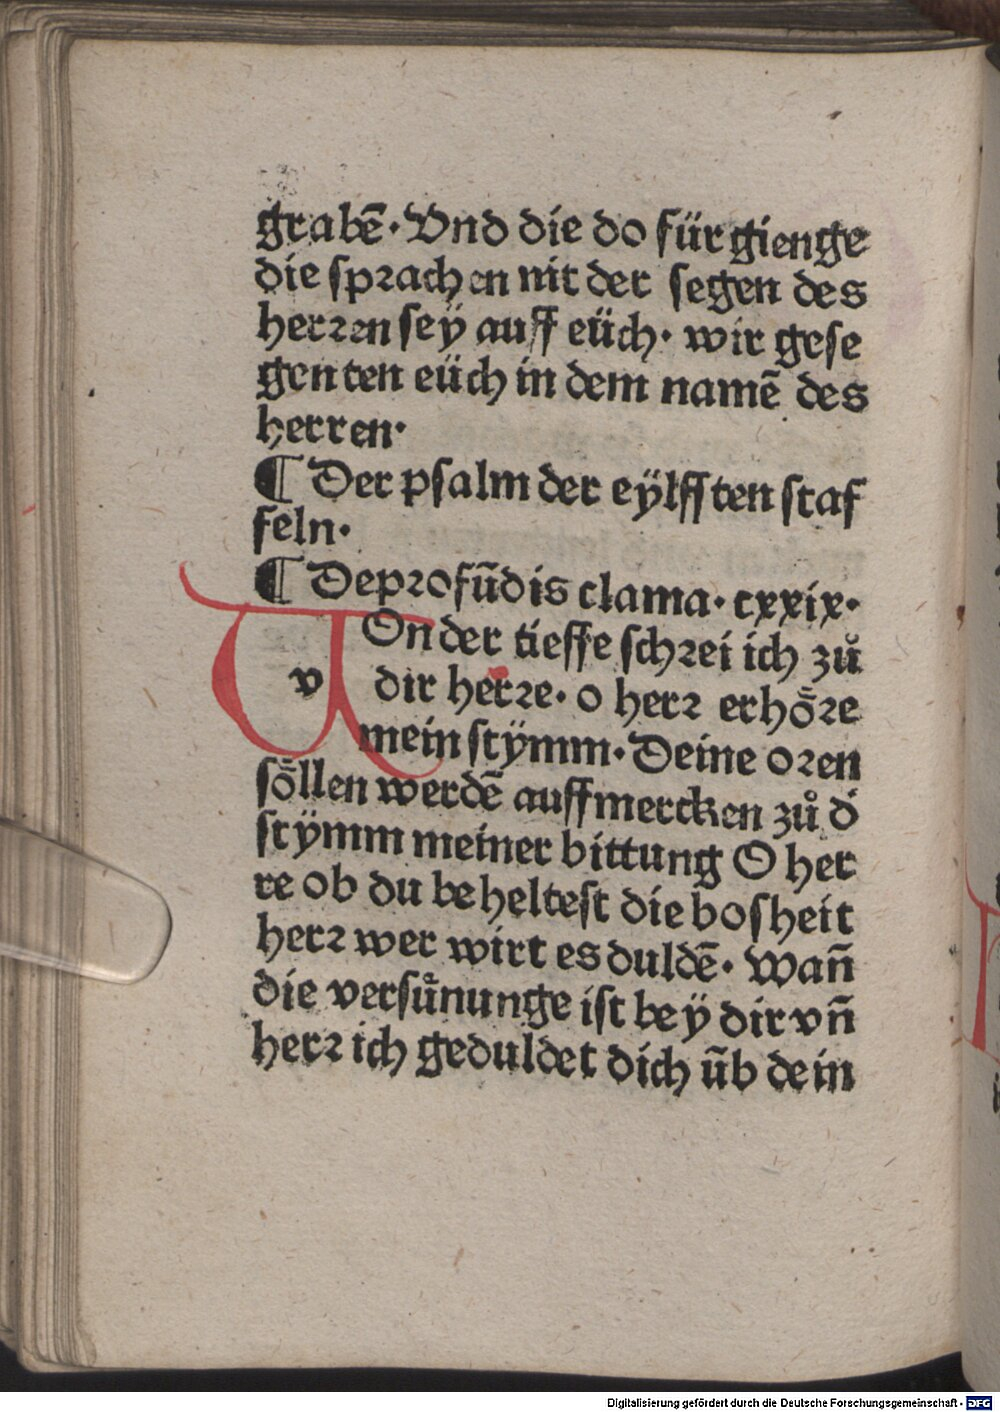 grabē· Vnd die do für gienge
die sprachen nit der segen des
herren sey̆ auff eüch· wir gese
genten eüch in dem namē des
herren·
¶ Der psalm der ey̆lfften staf
feln·
¶ Deprofūdis clama· cxxix·
VOn der tieffe schrei ich zů
v dir herre· o herr erhȫre
mein sty̆mm· Deine oren
sȫllen werdē auffmercken zů ḋ
sty̆mm meiner bittung O her
re ob du beheltest die bosheit
herr wer wirt es duldē· Wan̄
die versünunge ist bey̆ dir vn̄
herr ich geduldet dich üb dein
Digitalisierung gefördert durch die Deutsche Forschungsgemeinschaft - DFG